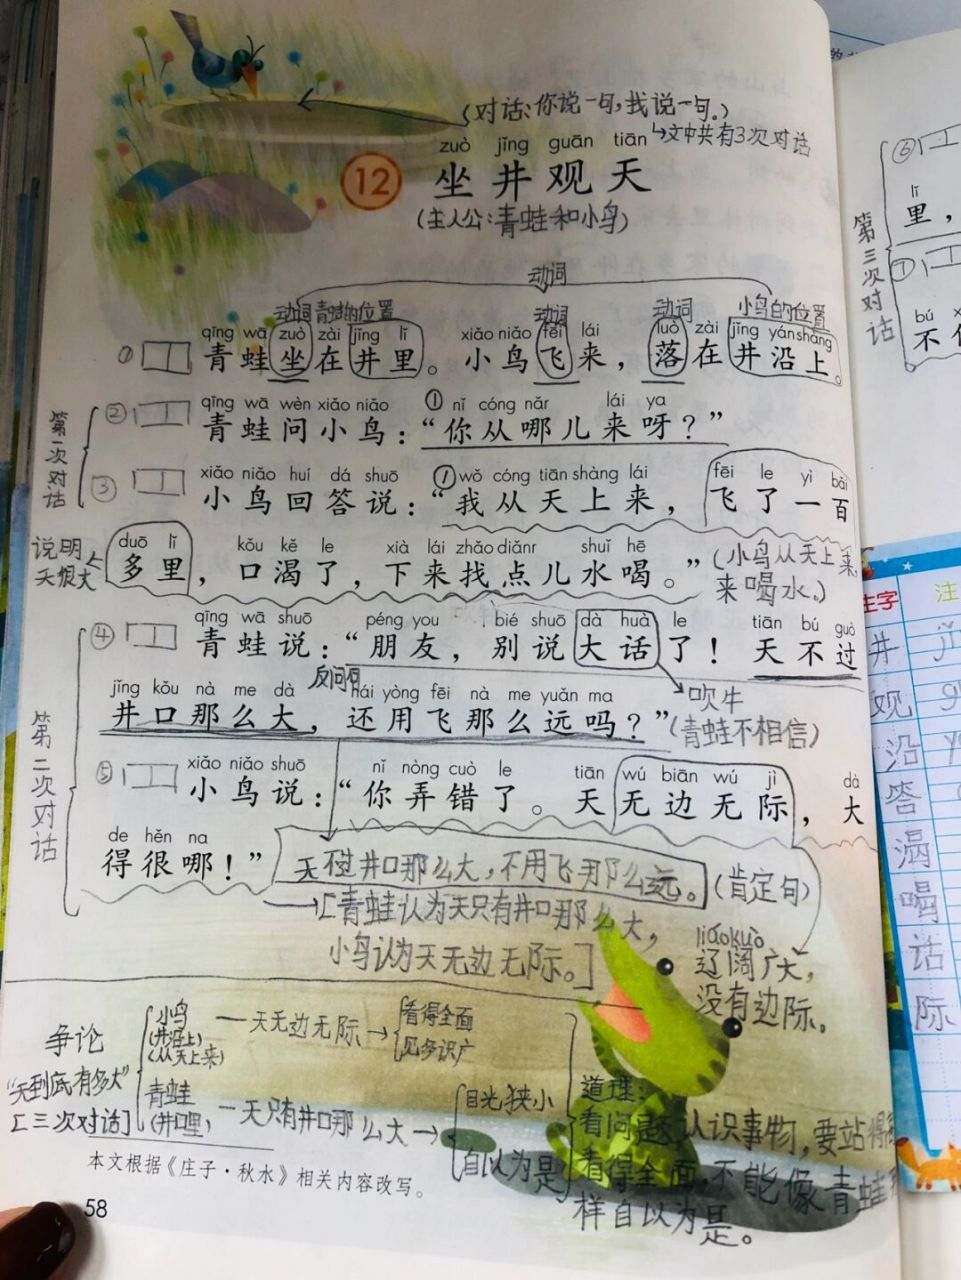 (对话:你说一句,我说一句。)
↳文中共有3次对话
zuò jǐng guān tiān
12 坐井观天
(主人公:青蛙和小鸟)
动词
动词 青蛙的位置 动词 动词 小鸟的位置
qīng wā zuò zài jǐng lǐ xiǎo niǎo fēi lái luò zài jǐng yán shàng
① 青蛙坐在井里。小鸟飞来,落在井沿上。
第一次对话
qīng wā wèn xiǎo niǎo nǐ cóng nǎr lái ya
② 青蛙问小鸟:“①你从哪儿来呀?”
xiǎo niǎo huí dá shuō wǒ cóng tiān shàng lái fēi le yì bǎi
③ 小鸟回答说:“①我从天上来,飞了一百
说明天很大
duō lǐ kǒu kě le xià lái zhǎo diǎnr shuǐ hē
多里,口渴了,下来找点儿水喝。”
(小鸟从天上来,
来喝水。)
第二次对话
qīng wā shuō péng you bié shuō dà huà le tiān bú guò
④ 青蛙说:“朋友,别说大话了!天不过
反问句
jǐng kǒu nà me dà hái yòng fēi nà me yuǎn ma
井口那么大,还用飞那么远吗?”
吹牛
(青蛙不相信)
xiǎo niǎo shuō nǐ nòng cuò le tiān wú biān wú jì dà
⑤ 小鸟说:“你弄错了。天无边无际,大
de hěn na
得很哪!”
天不过井口那么大,不用飞那么远。(肯定句)
[青蛙认为天只有井口那么大,
小鸟认为天无边无际。]
liáokuò
辽阔广大,
没有边际。
争论
“天到底有多大”
[三次对话]
小鸟
(井沿上)
(从天上来)
—天无边无际→
看得全面
见多识广
青蛙
(井口里)
—天只有井口那么大→
目光狭小
自以为是
道理:
看问题、认识事物,要站得高
看得全面,不能像青蛙
样自以为是。
本文根据《庄子·秋水》相关内容改写。
58
⑥
lǐ
里,
第三次对话
⑦
bú
不
生字 注
井
观
沿
答
渴
喝
话
际